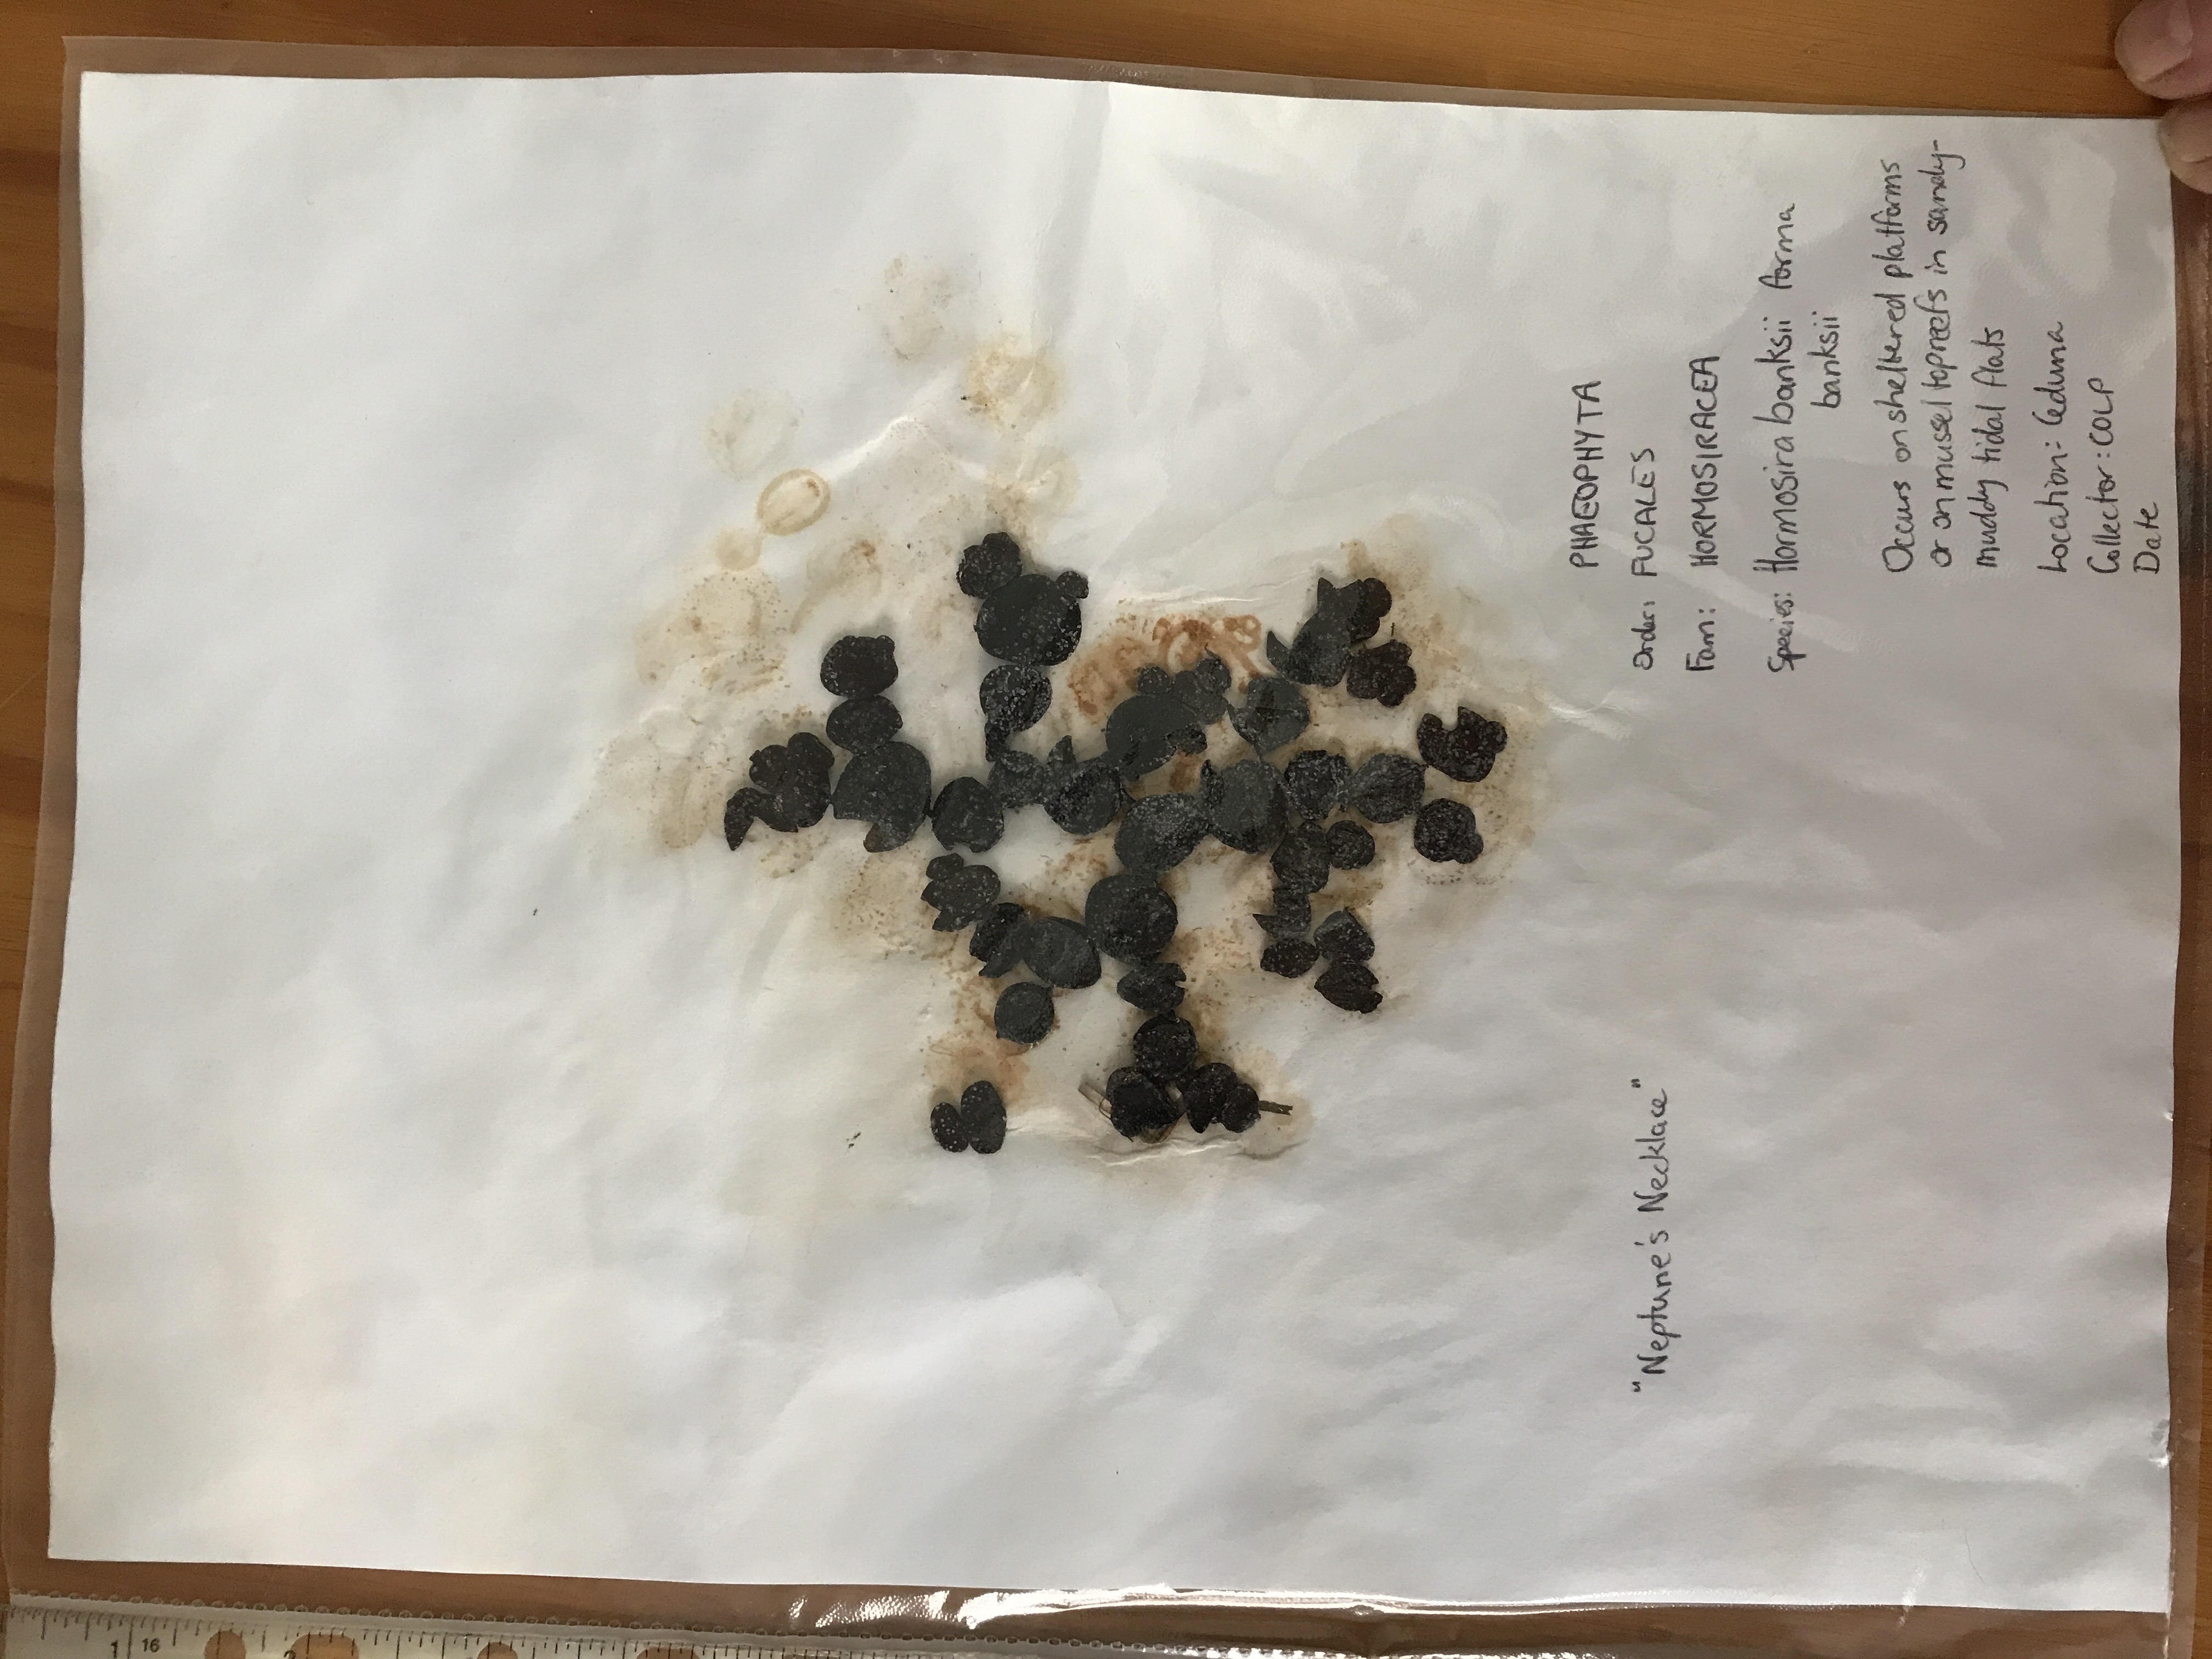 1
16
2
"Neptune's Necklace"
PHAEOPHYTA
Order: FUCALES
Fam: HORMOSIRACEA
Species: Hormosira banksii forma
banksii
Occurs on sheltered platforms
or on mussel topreefs in sandy-
muddy tidal flats
Location: Ceduna
Collector: COLP
Date